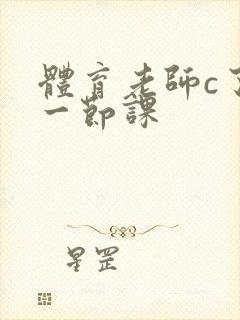 體育老師c了
一節課
星罡